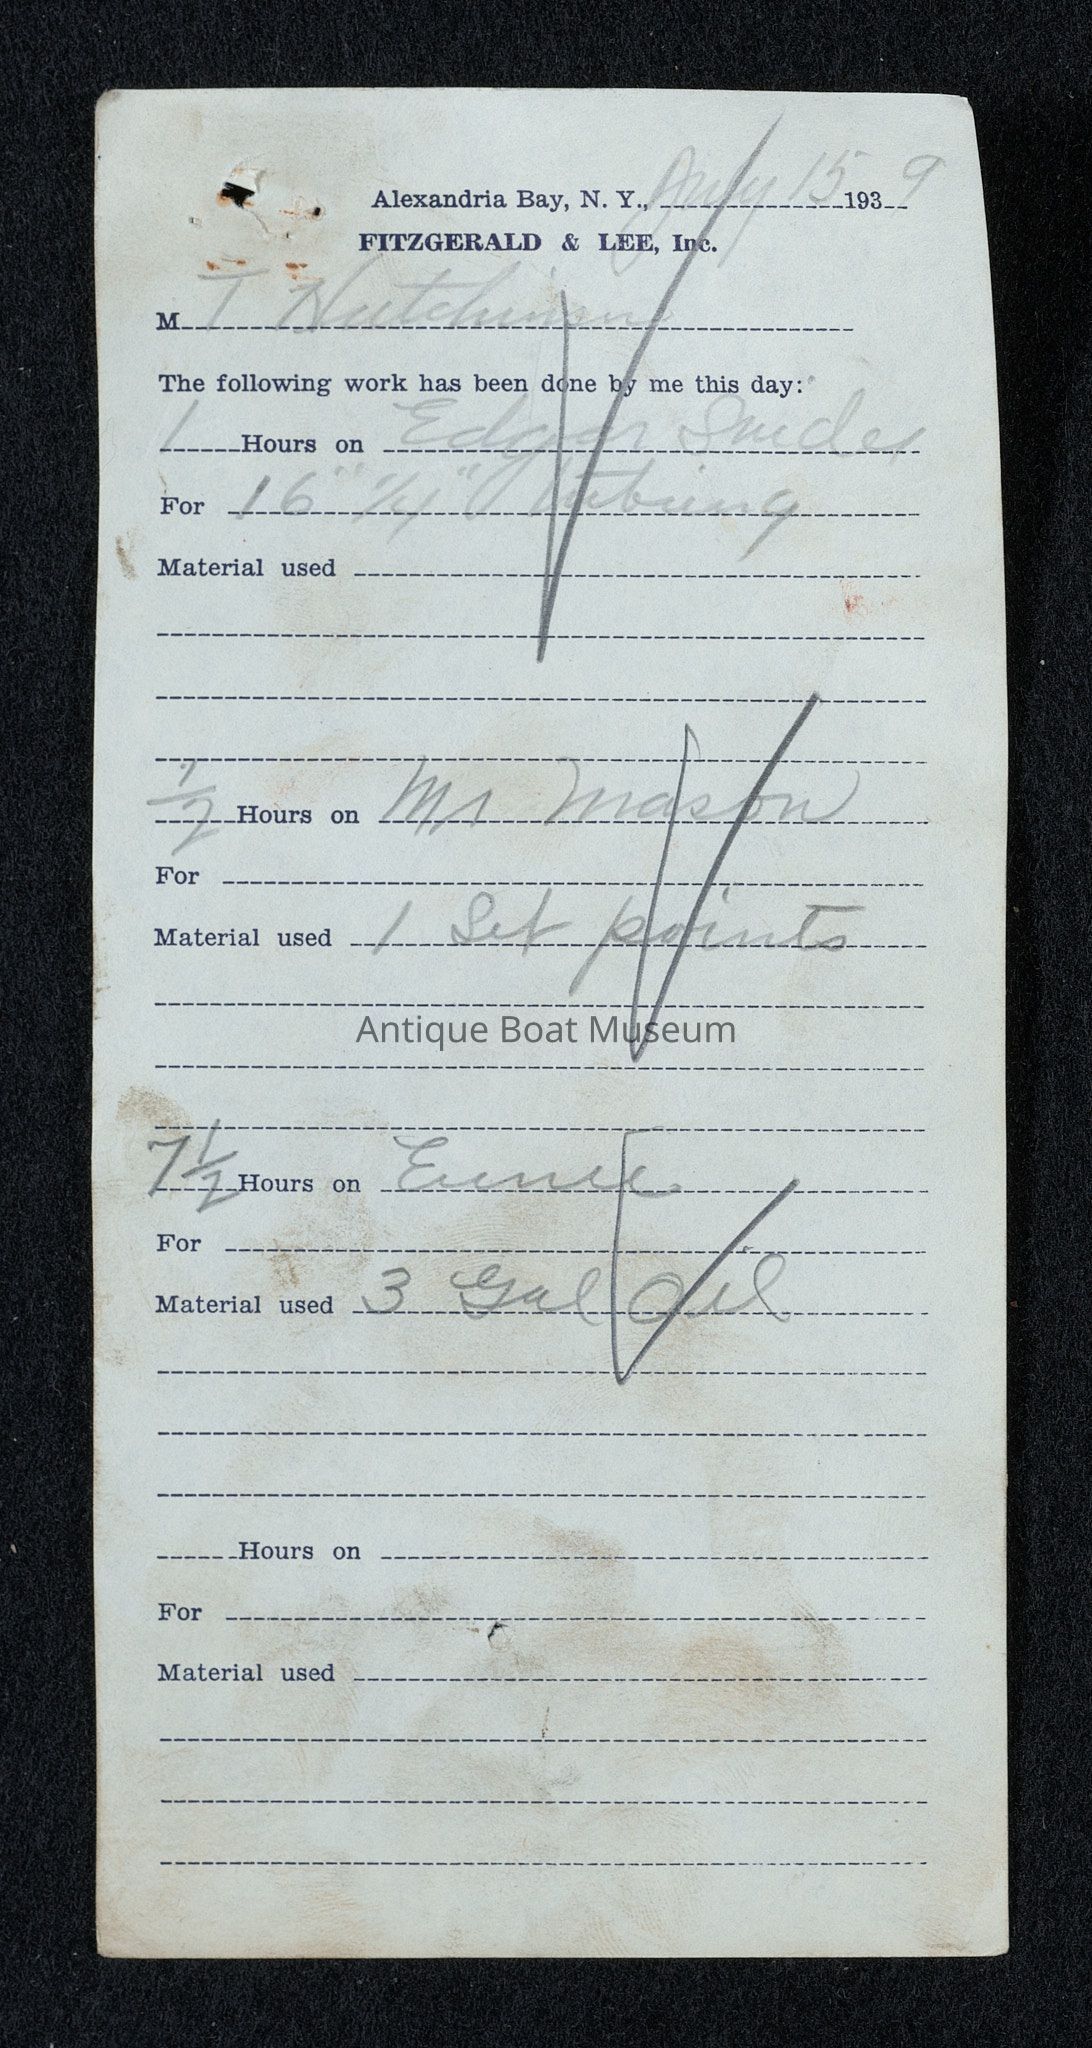 Alexandria Bay, N. Y., July 15 1939
FITZGERALD & LEE, Inc.
M T Hutchinson
The following work has been done by me this day:
1 Hours on Edgar Snider
For 16" 1/4" tubing
Material used
1/2 Hours on Mr Mason
For
Material used 1 Set points
Antique Boat Museum
7 1/2 Hours on
For
Material used 3 Gal Oil
Hours on
For
Material used